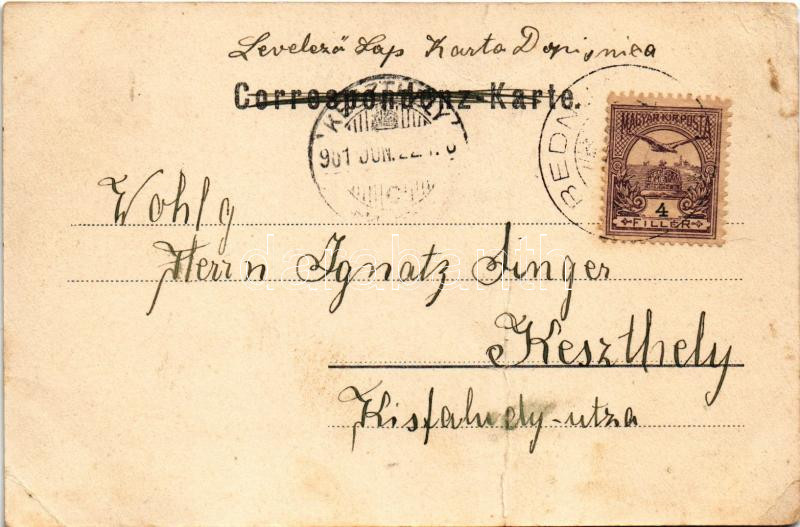 Levelező Lap Karta Dopisnica
Correspondenz-Karte.
KESZTHELY
901 JUN. 22.
BEDN
MAGYAR·KIR·POSTA
4
FILLÉR
Wohlg
Herrn Ignatz Singer
Keszthely
Kisfaludy-utza